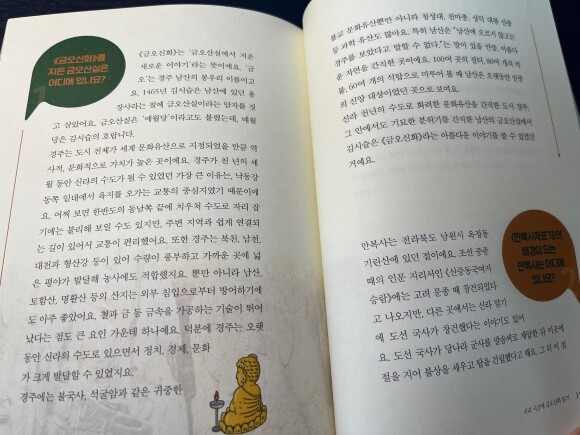 《금오신화》를
지은 금오산실은
어디에 있나요?
《금오신화》는 '금오산실에서 지은
새로운 이야기'라는 뜻이에요. '금
오'는 경주 남산의 봉우리 이름이고
요. 1465년 김시습은 남산에 있던 용
장사라는 절에 금오산실이라는 암자를 짓
고 살았어요. 금오산실은 '매월당'이라고도 불렸는데, 매월
당은 김시습의 호랍니다.
경주는 도시 전체가 세계 문화유산으로 지정되었을 만큼 역
사적, 문화적으로 가치가 높은 곳이에요. 경주가 천 년의 세
월 동안 신라의 수도가 될 수 있었던 가장 큰 이유는, 낙동강
동쪽 일대에서 육지를 오가는 교통의 중심지였기 때문이에
요. 어찌 보면 한반도의 동남쪽 끝에 치우쳐 수도로 자리 잡
기에는 불리해 보일 수도 있지만, 주변 지역과 쉽게 연결되
는 길이 있어서 교통이 편리했어요. 또한 경주는 북천, 남천,
대천과 형산강 등이 있어 수량이 풍부하고 가까운 곳에 넓
은 평야가 발달해 농사에도 적합했지요. 뿐만 아니라 남산,
토함산, 명활산 등의 산지는 외부 침입으로부터 방어하기에
도 아주 좋았어요. 철과 금 등 금속을 가공하는 기술이 뛰어
났다는 점도 큰 요인 가운데 하나예요. 덕분에 경주는 오랫
동안 신라의 수도로 있으면서 정치, 경제, 문화
가 크게 발달할 수 있었지요.
경주에는 불국사, 석굴암과 같은 귀중한
불교 문화유산뿐만 아니라 첨성대, 천마총, 성덕 대왕 신종
등 과학 유산도 많아요. 특히 남산은 "남산에 오르지 않고는
경주를 보았다고 말할 수 없다."는 말이 있을 만큼, 아름다
운 자연을 간직한 곳이에요. 100여 곳의 절터, 80여 개의 석
불, 60여 개의 석탑으로 미루어 볼 때 남산은 오랫동안 민중
의 신앙 대상이었던 곳으로 보여요.
신라 천년의 수도로 화려한 문화유산을 간직한 도시 경주,
그 안에서도 기묘한 분위기를 간직한 남산의 금오산실에서
김시습은 《금오신화》라는 아름다운 이야기를 쓸 수 있었던
거예요.
〈만복사저포기〉의
배경이 되는
만복사는 어디에
있나요?
만복사는 전라북도 남원시 왕정동
기린산에 있던 절이에요. 조선 중종
때의 인문 지리서인 《신증동국여지
승람》에는 고려 문종 때 창건되었다
고 나오지만, 다른 곳에서는 신라 말기
에 도선 국사가 창건했다는 이야기도 있어
요. 도선 국사가 당나라 군사를 방송책로 재앙한 뒤 이곳에
절을 지어 불상을 세우고 탑을 건립했다고 해요. 그 뒤 이 절